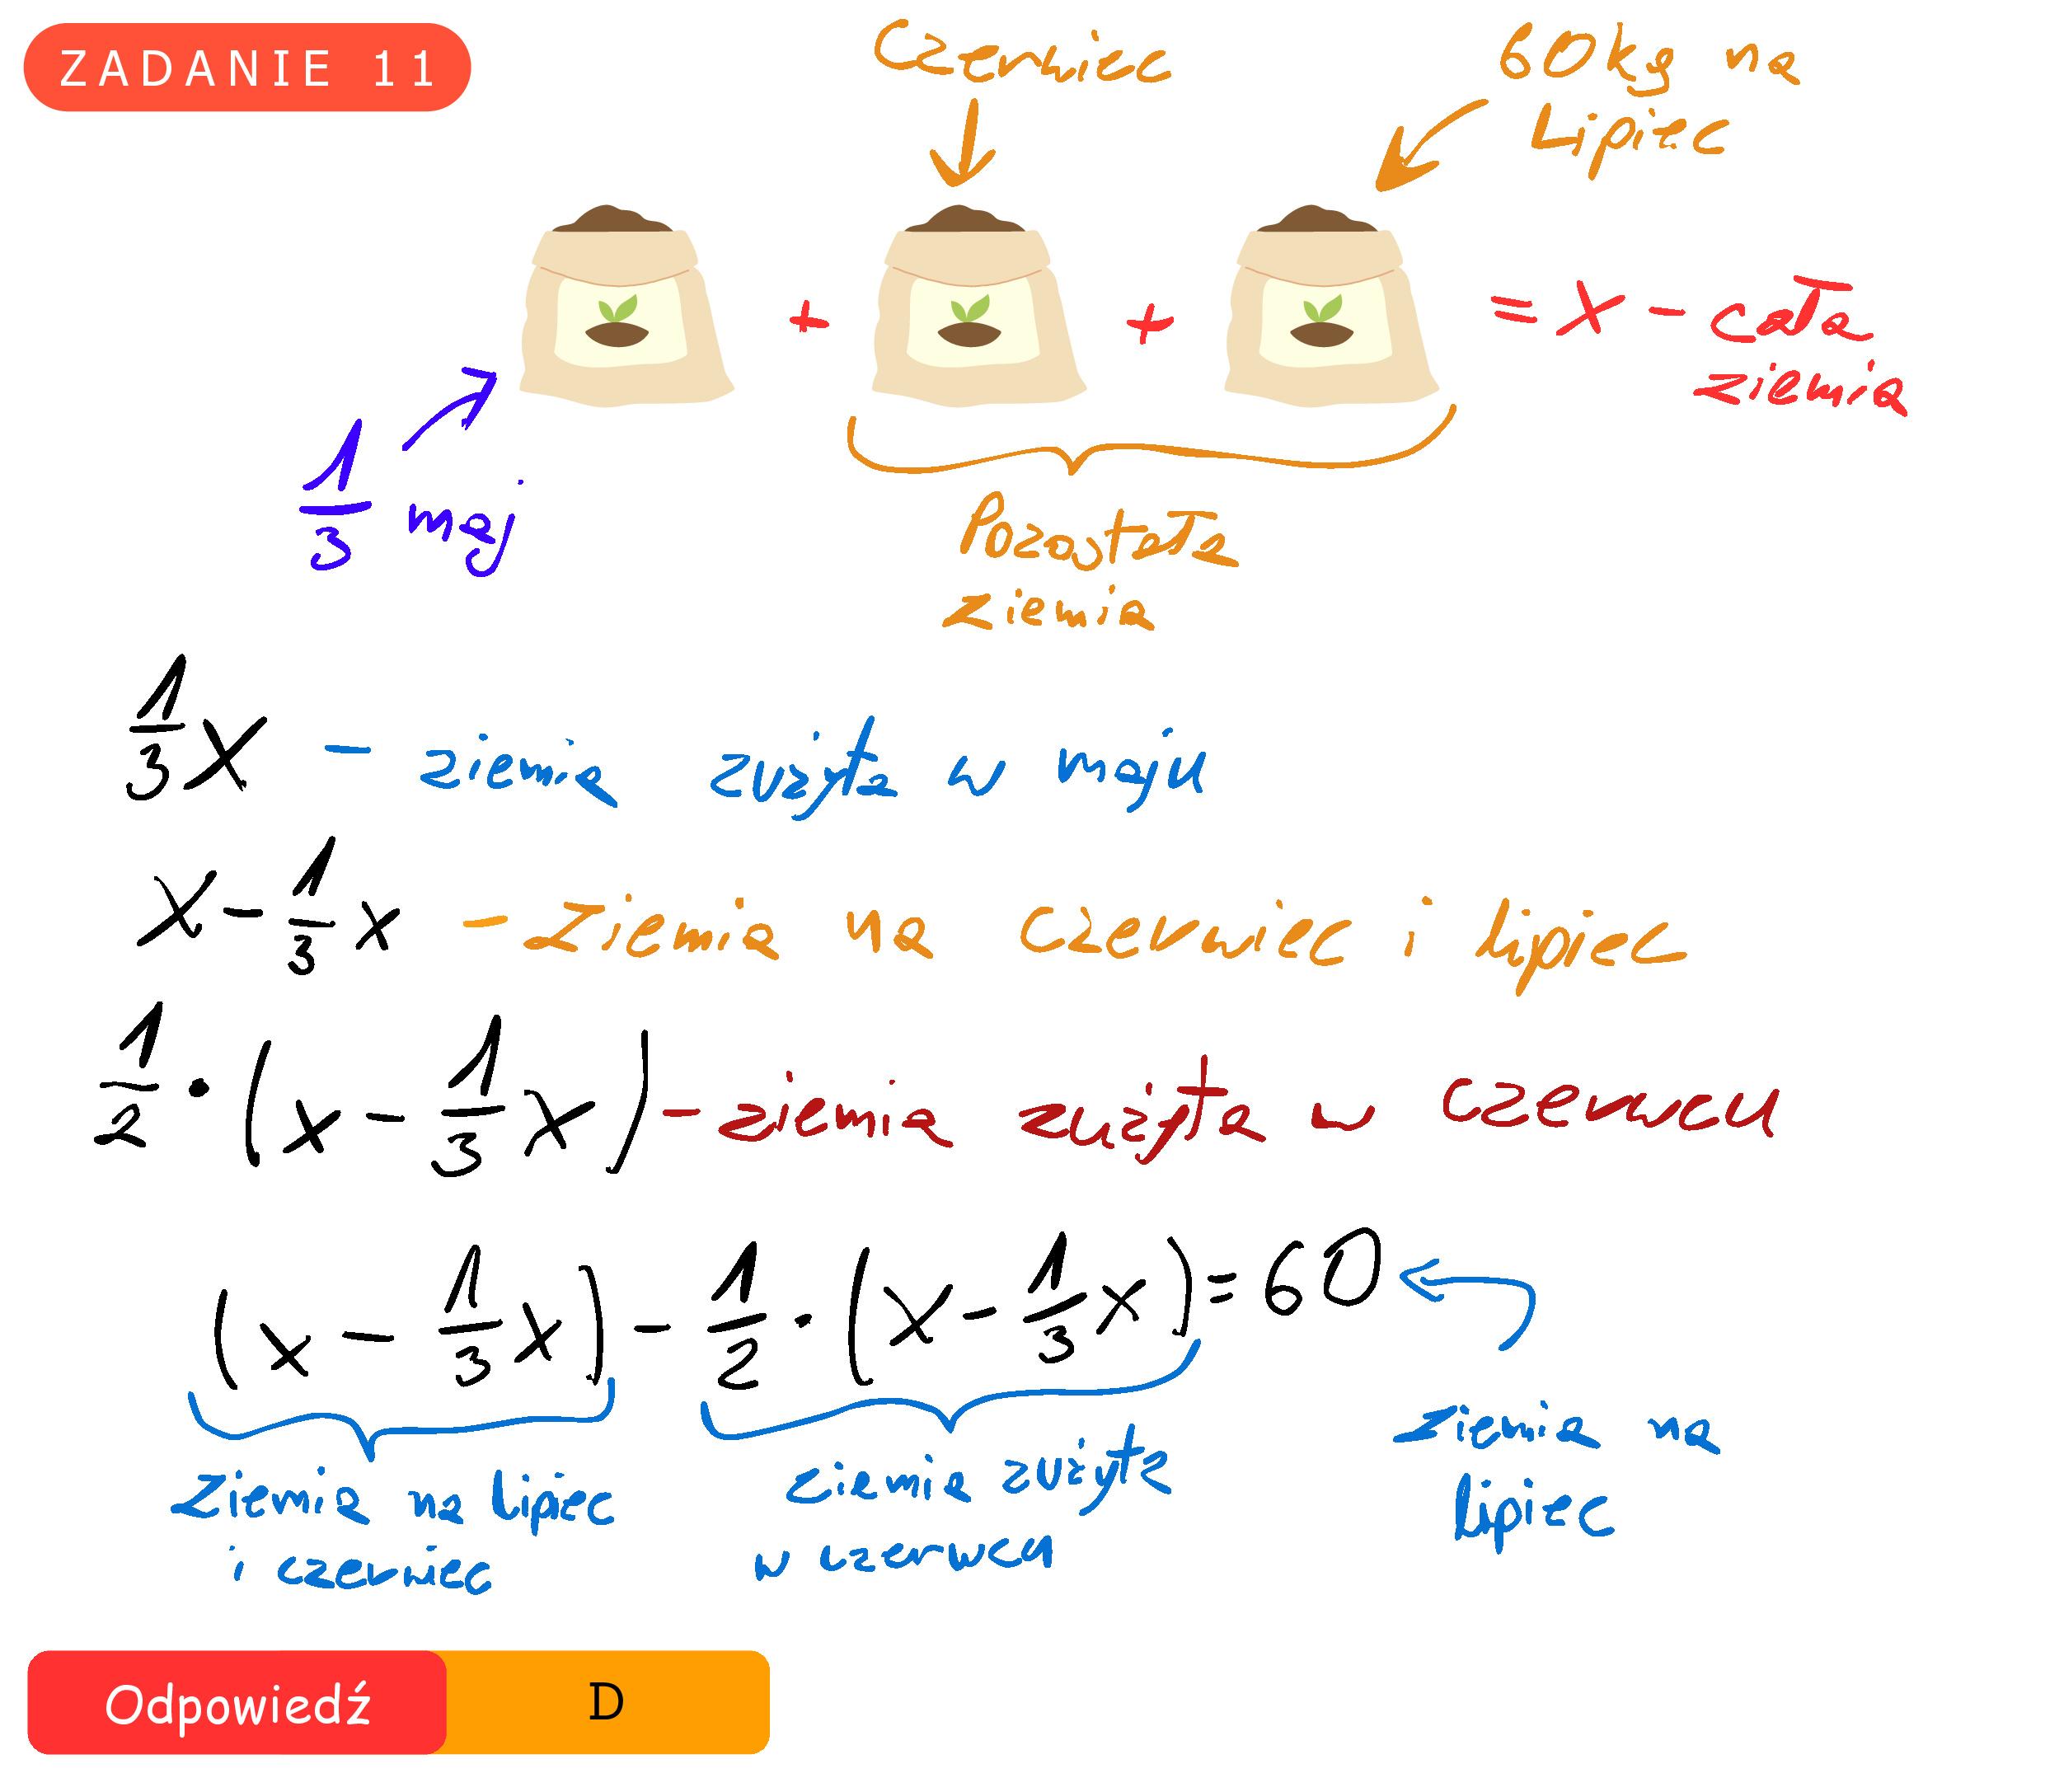 ZADANIE 11
Czerwiec
60kg na
Lipiec
+ + = x - cała
ziemia
1/3 maj
Pozostała
ziemia
1/3 x - ziemia zużyta w maju
x - 1/3 x - ziemia na czerwiec i lipiec
1/2 · (x - 1/3 x) - ziemia zużyta w czerwcu
(x - 1/3 x) - 1/2 · (x - 1/3 x) = 60
ziemia na lipiec
i czerwiec
ziemia zużyta
w czerwcu
ziemia na
lipiec
Odpowiedź D